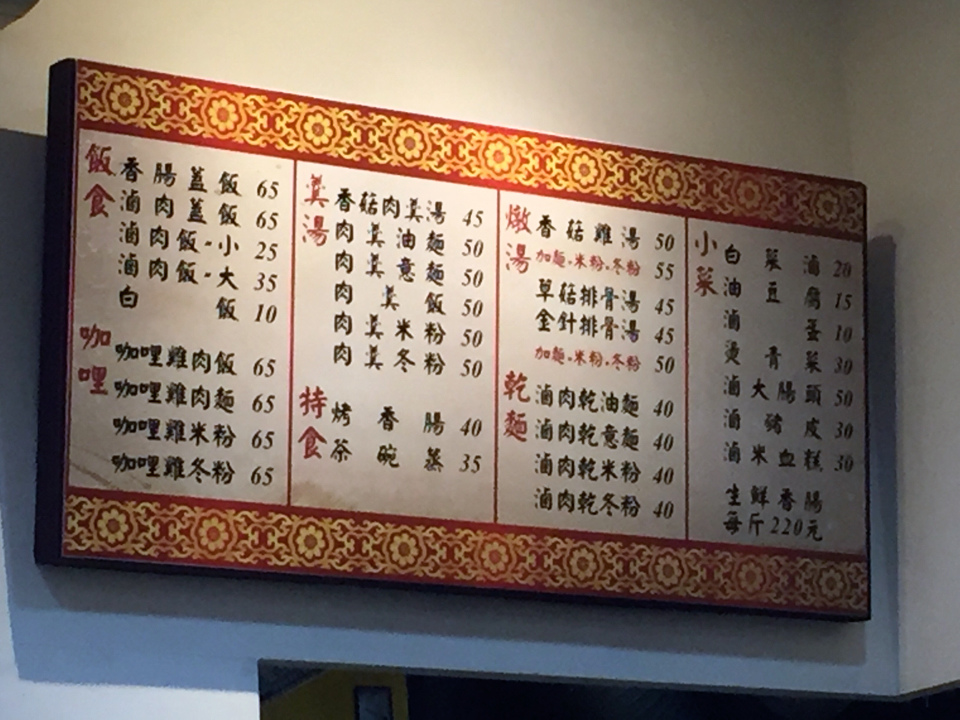 飯食
香腸蓋飯 65
滷肉蓋飯 65
滷肉飯-小 25
滷肉飯-大 35
白飯 10
咖哩
咖哩雞肉飯 65
咖哩雞肉麵 65
咖哩雞米粉 65
咖哩雞冬粉 65
羹湯
香菇肉羹湯 45
肉羹油麵 50
肉羹意麵 50
肉羹飯 50
肉羹米粉 50
肉羹冬粉 50
持食
烤香腸 40
茶碗蒸 35
燉湯
香菇雞湯 50
加麵.米粉.冬粉 55
草菇排骨湯 45
金針排骨湯 45
加麵.米粉.冬粉 50
乾麵
滷肉乾油麵 40
滷肉乾意麵 40
滷肉乾米粉 40
滷肉乾冬粉 40
小菜
白菜滷 20
油豆腐 15
滷蛋 10
燙青菜 30
滷大腸頭 50
滷豬皮 30
滷米血糕 30
生鮮香腸
每斤220元